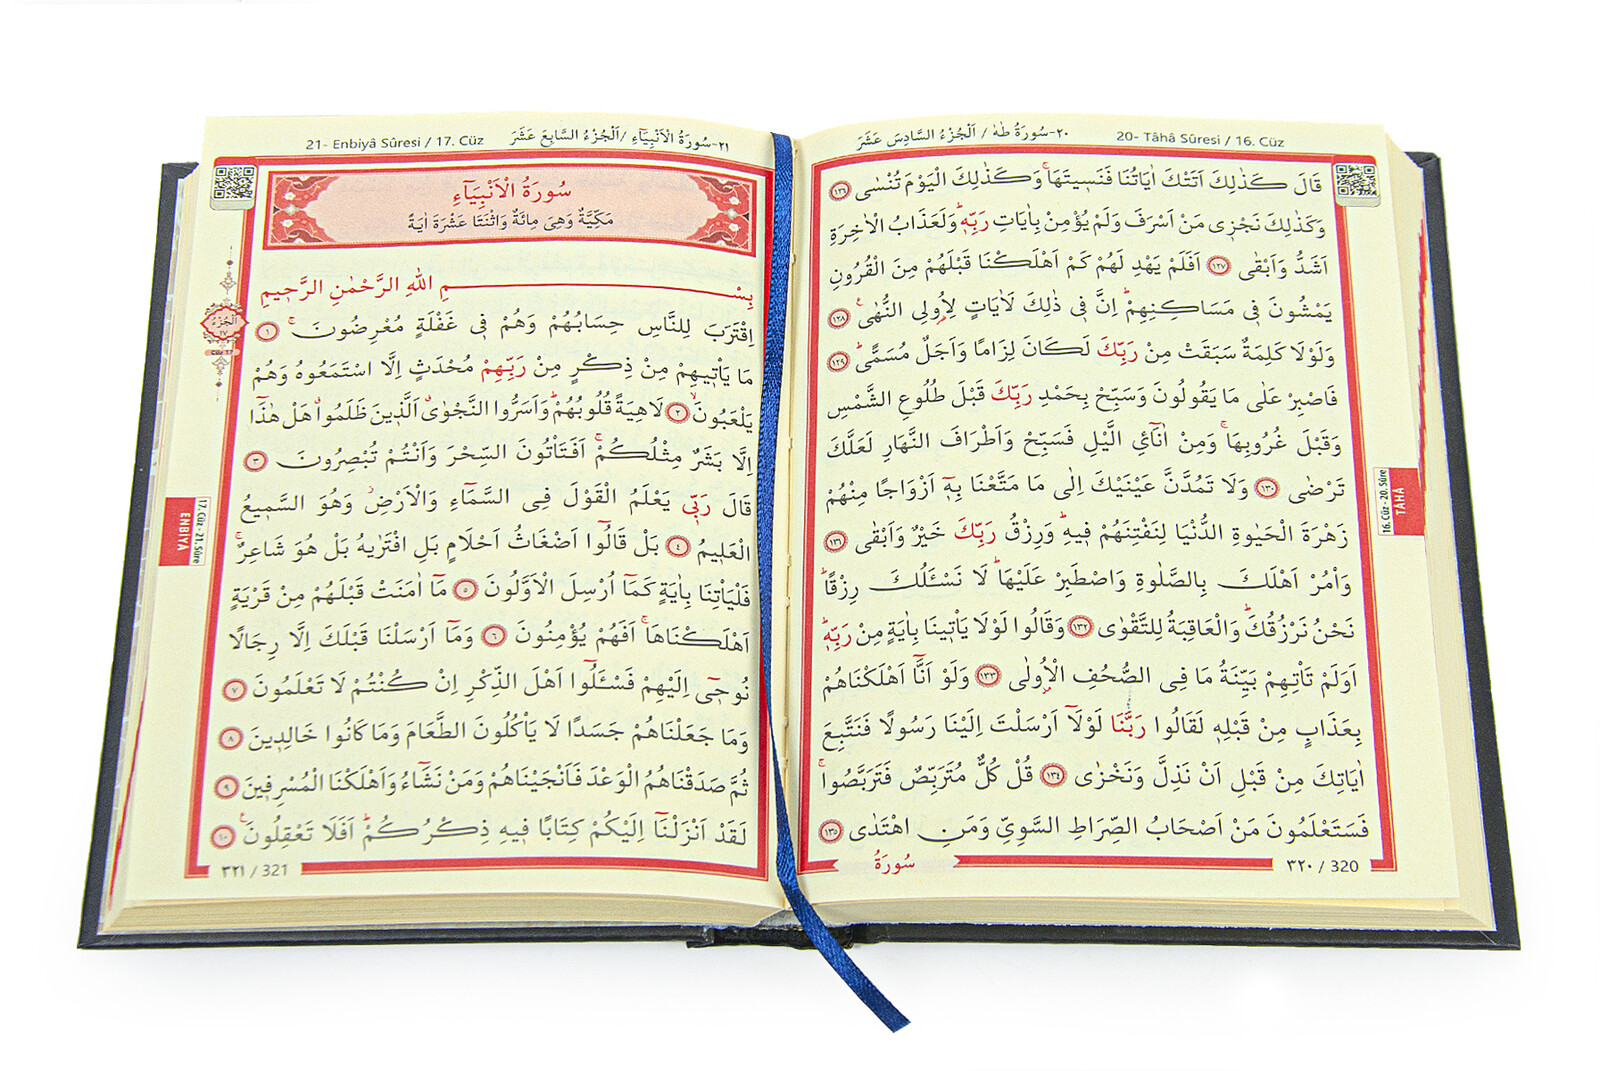 ٢٠-سُورَةُ طٰهٰ / اَلْجُزْءُ السَّادِسَ عَشَرَ
20- Tâhâ Sûresi / 16. Cüz
قَالَ كَذٰلِكَ اَتَتْكَ اٰيَاتُنَا فَنَسٖيتَهَاۚ وَكَذٰلِكَ الْيَوْمَ تُنْسٰى ١٢٦
وَكَذٰلِكَ نَجْزٖى مَنْ اَسْرَفَ وَلَمْ يُؤْمِنْ بِاٰيَاتِ رَبِّهٖؕ وَلَعَذَابُ الْاٰخِرَةِ
اَشَدُّ وَاَبْقٰى ١٢٧ اَفَلَمْ يَهْدِ لَهُمْ كَمْ اَهْلَكْنَا قَبْلَهُمْ مِنَ الْقُرُونِ
يَمْشُونَ فٖى مَسَاكِنِهِمْؕ اِنَّ فٖى ذٰلِكَ لَاٰيَاتٍ لِاُولِى النُّهٰىۚ ١٢٨
وَلَوْلَا كَلِمَةٌ سَبَقَتْ مِنْ رَبِّكَ لَكَانَ لِزَامًا وَاَجَلٌ مُسَمًّىؕ ١٢٩
فَاصْبِرْ عَلٰى مَا يَقُولُونَ وَسَبِّحْ بِحَمْدِ رَبِّكَ قَبْلَ طُلُوعِ الشَّمْسِ
وَقَبْلَ غُرُوبِهَاۚ وَمِنْ اٰنَآئِ الَّيْلِ فَسَبِّحْ وَاَطْرَافَ النَّهَارِ لَعَلَّكَ
تَرْضٰى ١٣٠ وَلَا تَمُدَّنَّ عَيْنَيْكَ اِلٰى مَا مَتَّعْنَا بِهٖٓ اَزْوَاجًا مِنْهُمْ
زَهْرَةَ الْحَيٰوةِ الدُّنْيَا لِنَفْتِنَهُمْ فٖيهِؕ وَرِزْقُ رَبِّكَ خَيْرٌ وَاَبْقٰى ١٣١
وَاْمُرْ اَهْلَكَ بِالصَّلٰوةِ وَاصْطَبِرْ عَلَيْهَاؕ لَا نَسْـَٔلُكَ رِزْقًاؕ
نَحْنُ نَرْزُقُكَؕ وَالْعَاقِبَةُ لِلتَّقْوٰى ١٣٢ وَقَالُوا لَوْلَا يَاْتٖينَا بِاٰيَةٍ مِنْ رَبِّهٖؕ
اَوَلَمْ تَاْتِهِمْ بَيِّنَةُ مَا فِى الصُّحُفِ الْاُولٰى ١٣٣ وَلَوْ اَنَّٓا اَهْلَكْنَاهُمْ
بِعَذَابٍ مِنْ قَبْلِهٖ لَقَالُوا رَبَّنَا لَوْلَٓا اَرْسَلْتَ اِلَيْنَا رَسُولًا فَنَتَّبِعَ
اٰيَاتِكَ مِنْ قَبْلِ اَنْ نَذِلَّ وَنَخْزٰى ١٣٤ قُلْ كُلٌّ مُتَرَبِّصٌ فَتَرَبَّصُواۚ
فَسَتَعْلَمُونَ مَنْ اَصْحَابُ الصِّرَاطِ السَّوِىِّ وَمَنِ اهْتَدٰى ١٣٥
سُورَةُ
٣٢٠ / 320
16. Cüz - 20. Sûre
TÂHÂ
٢١-سُورَةُ الْاَنْبِيَٓاءِ / اَلْجُزْءُ السَّابِعَ عَشَرَ
21- Enbiyâ Sûresi / 17. Cüz
سُورَةُ الْاَنْبِيَٓاءِ
مَكِّيَّةٌ وَهِىَ مِائَةٌ وَاثْنَتَا عَشْرَةَ اٰيَةً
بِسْمِ اللّٰهِ الرَّحْمٰنِ الرَّحٖيمِ
اِقْتَرَبَ لِلنَّاسِ حِسَابُهُمْ وَهُمْ فٖى غَفْلَةٍ مُعْرِضُونَۚ ١
مَا يَاْتٖيهِمْ مِنْ ذِكْرٍ مِنْ رَبِّهِمْ مُحْدَثٍ اِلَّا اسْتَمَعُوهُ وَهُمْ
يَلْعَبُونَۙ ٢ لَاهِيَةً قُلُوبُهُمْؕ وَاَسَرُّوا النَّجْوٰىۗ اَلَّذٖينَ ظَلَمُواۗ هَلْ هٰذَٓا
اِلَّا بَشَرٌ مِثْلُكُمْۚ اَفَتَاْتُونَ السِّحْرَ وَاَنْتُمْ تُبْصِرُونَ ٣
قَالَ رَبّٖى يَعْلَمُ الْقَوْلَ فِى السَّمَٓاءِ وَالْاَرْضِؗ وَهُوَ السَّمٖيعُ
الْعَلٖيمُ ٤ بَلْ قَالُٓوا اَضْغَاثُ اَحْلَامٍ بَلِ افْتَرٰيهُ بَلْ هُوَ شَاعِرٌۚ
فَلْيَاْتِنَا بِاٰيَةٍ كَمَٓا اُرْسِلَ الْاَوَّلُونَ ٥ مَٓا اٰمَنَتْ قَبْلَهُمْ مِنْ قَرْيَةٍ
اَهْلَكْنَاهَاۚ اَفَهُمْ يُؤْمِنُونَ ٦ وَمَٓا اَرْسَلْنَا قَبْلَكَ اِلَّا رِجَالًا
نُوحٖٓى اِلَيْهِمْ فَسْـَٔلُٓوا اَهْلَ الذِّكْرِ اِنْ كُنْتُمْ لَا تَعْلَمُونَ ٧
وَمَا جَعَلْنَاهُمْ جَسَدًا لَا يَاْكُلُونَ الطَّعَامَ وَمَا كَانُوا خَالِدٖينَ ٨
ثُمَّ صَدَقْنَاهُمُ الْوَعْدَ فَاَنْجَيْنَاهُمْ وَمَنْ نَشَٓاءُ وَاَهْلَكْنَا الْمُسْرِفٖينَ ٩
لَقَدْ اَنْزَلْنَٓا اِلَيْكُمْ كِتَابًا فٖيهِ ذِكْرُكُمْؕ اَفَلَا تَعْقِلُونَۚ ١٠
٣٢١ / 321
اَلْجُزْءُ
١٧
CÜZ 17
17. Cüz - 21. Sûre
ENBİYA